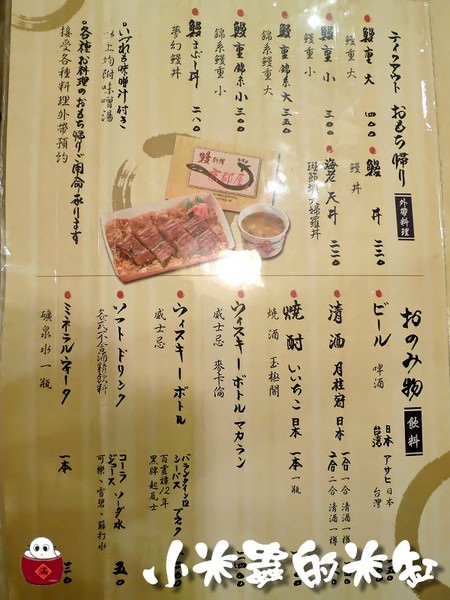 テイクアウト おもち帰り 外帶料理
鰻重 大 四〇〇
鰻重 大
鰻丼 三三〇
鰻丼
鰻重 小 三〇〇
鰻重 小
海老天丼 二二〇
斑節蝦天婦羅丼
鰻重 錦糸 大 三五〇
錦系鰻重 大
鰻重 錦糸 小 三〇〇
錦系鰻重 小
鰻まぶし丼 二八〇
夢幻鰻丼
いづれも味噌汁付き
以上均附味噌湯
各種お料理のおもち帰りご用命承ります
接受各種料理外帶預約
鰻料理
京都屋
おのみ物 飲料
ビール 啤酒
日本 アサヒ 日本
台湾 台灣
清酒 月桂冠 日本
一合 一合 清酒一樣
二合 二合 清酒一樣
焼酎 いいちこ 日本 一本 一瓶
燒酒
ウィスキーボトル マカラン
威士忌 麥卡倫
ウィスキーボトル
威士忌
シーバス
百靈譚12年
ソフトドリンク
各式不含酒精飲料
コーラ ソーダ水
ジュース
可樂、雪碧、蘇打水
五〇
ミネラルウォータ
礦泉水 一瓶
一本
三〇
小米蟲的米缸